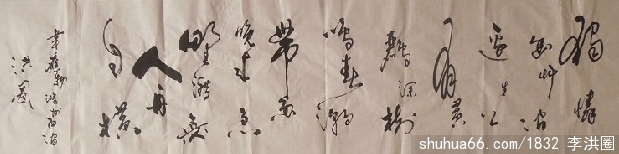 独怜
幽草涧
边生上
有黄
鹂深树
鸣春潮
带雨
晚来急
野渡无
人舟
自横
韦应物滁州西涧
洪圈
shuhua66.com/1832 李洪圈